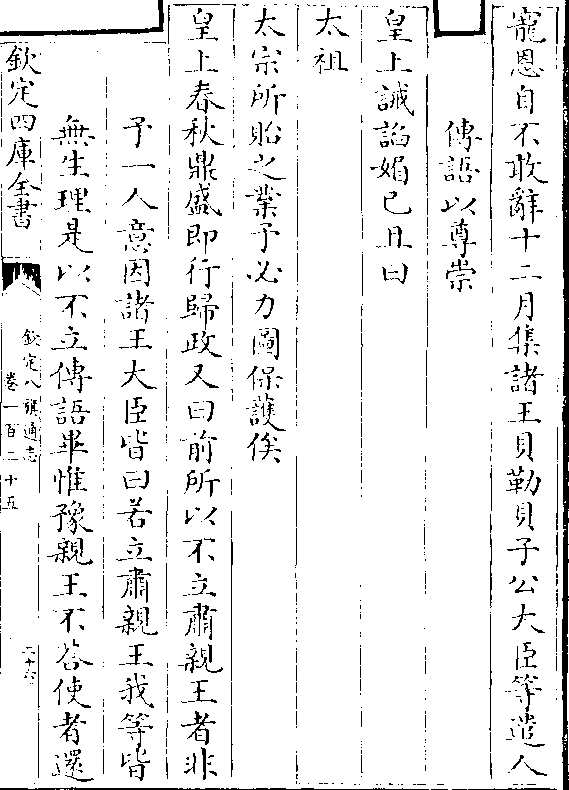 寵恩自不敢辭十二月集諸王貝勒貝子公大臣等遣人
傳語以尊崇
皇上誡諂媚已且曰
太祖
太宗所貽之業予必力圖保護俟
皇上春秋鼎盛即行歸政又曰前所以不立肅親王者非
予一人意因諸王大臣皆曰若立肅親王我等皆
無生理是以不立傳語畢惟豫親王不答使者還
欽定四庫全書
欽定八旗通志
卷一百二十五
二十六